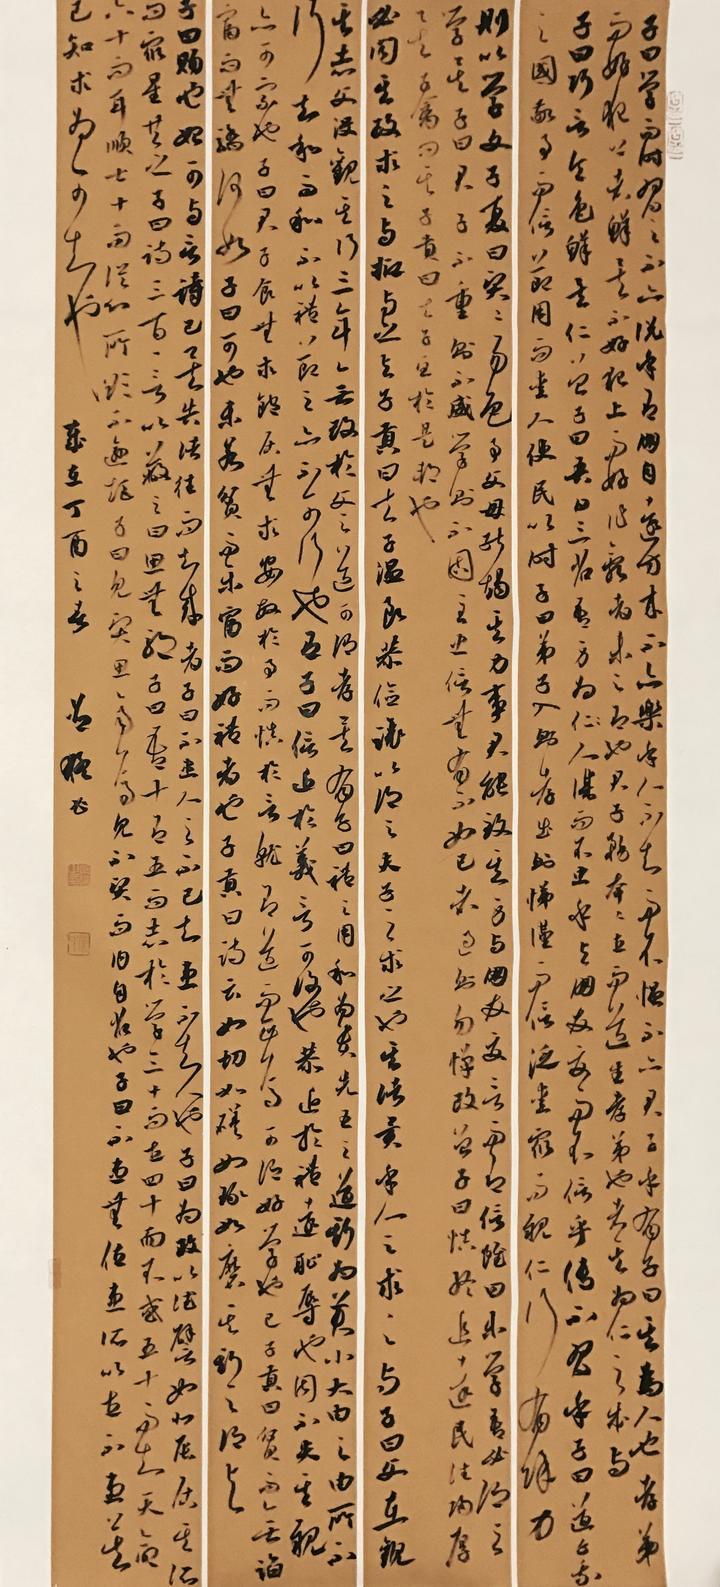 子曰學而時習之不亦說乎有朋自遠方來不亦樂乎人不知而不慍不亦君子乎有子曰其為人也孝弟
而好犯上者鮮矣不好犯上而好作亂者未之有也君子務本本立而道生孝弟也者其為仁之本與
子曰巧言令色鮮矣仁曾子曰吾日三省吾身為人謀而不忠乎與朋友交而不信乎傳不習乎子曰道千乘
之國敬事而信節用而愛人使民以時子曰弟子入則孝出則悌謹而信泛愛眾而親仁行有餘力
則以學文子夏曰賢賢易色事父母能竭其力事君能致其身與朋友交言而有信雖曰未學吾必謂之
學矣子曰君子不重則不威學則不固主忠信無友不如己者過則勿憚改曾子曰慎終追遠民德歸厚
矣子禽問於子貢曰夫子至於是邦也
必聞其政求之與抑與之與子貢曰夫子溫良恭儉讓以得之夫子之求之也其諸異乎人之求之與子曰父在觀
其志父沒觀其行三年無改於父之道可謂孝矣有子曰禮之用和為貴先王之道斯為美小大由之有所不
行知和而和不以禮節之亦不可行也有子曰信近於義言可復也恭近於禮遠恥辱也因不失其親
亦可宗也子曰君子食無求飽居無求安敏於事而慎於言就有道而正焉可謂好學也已子貢曰貧而無諂
富而無驕何如子曰可也未若貧而樂富而好禮者也子貢曰詩云如切如磋如琢如磨其斯之謂與
子曰賜也始可與言詩已矣告諸往而知來者子曰不患人之不己知患不知人也子曰為政以德譬如北辰居其所
而眾星共之子曰詩三百一言以蔽之曰思無邪子曰吾十有五而志於學三十而立四十而不惑五十而知天命
六十而耳順七十而從心所欲不逾矩子曰見賢思齊焉見不賢而內自省也子曰不患無位患所以立不患莫
己知求為可知也
歲在丁酉之春
書